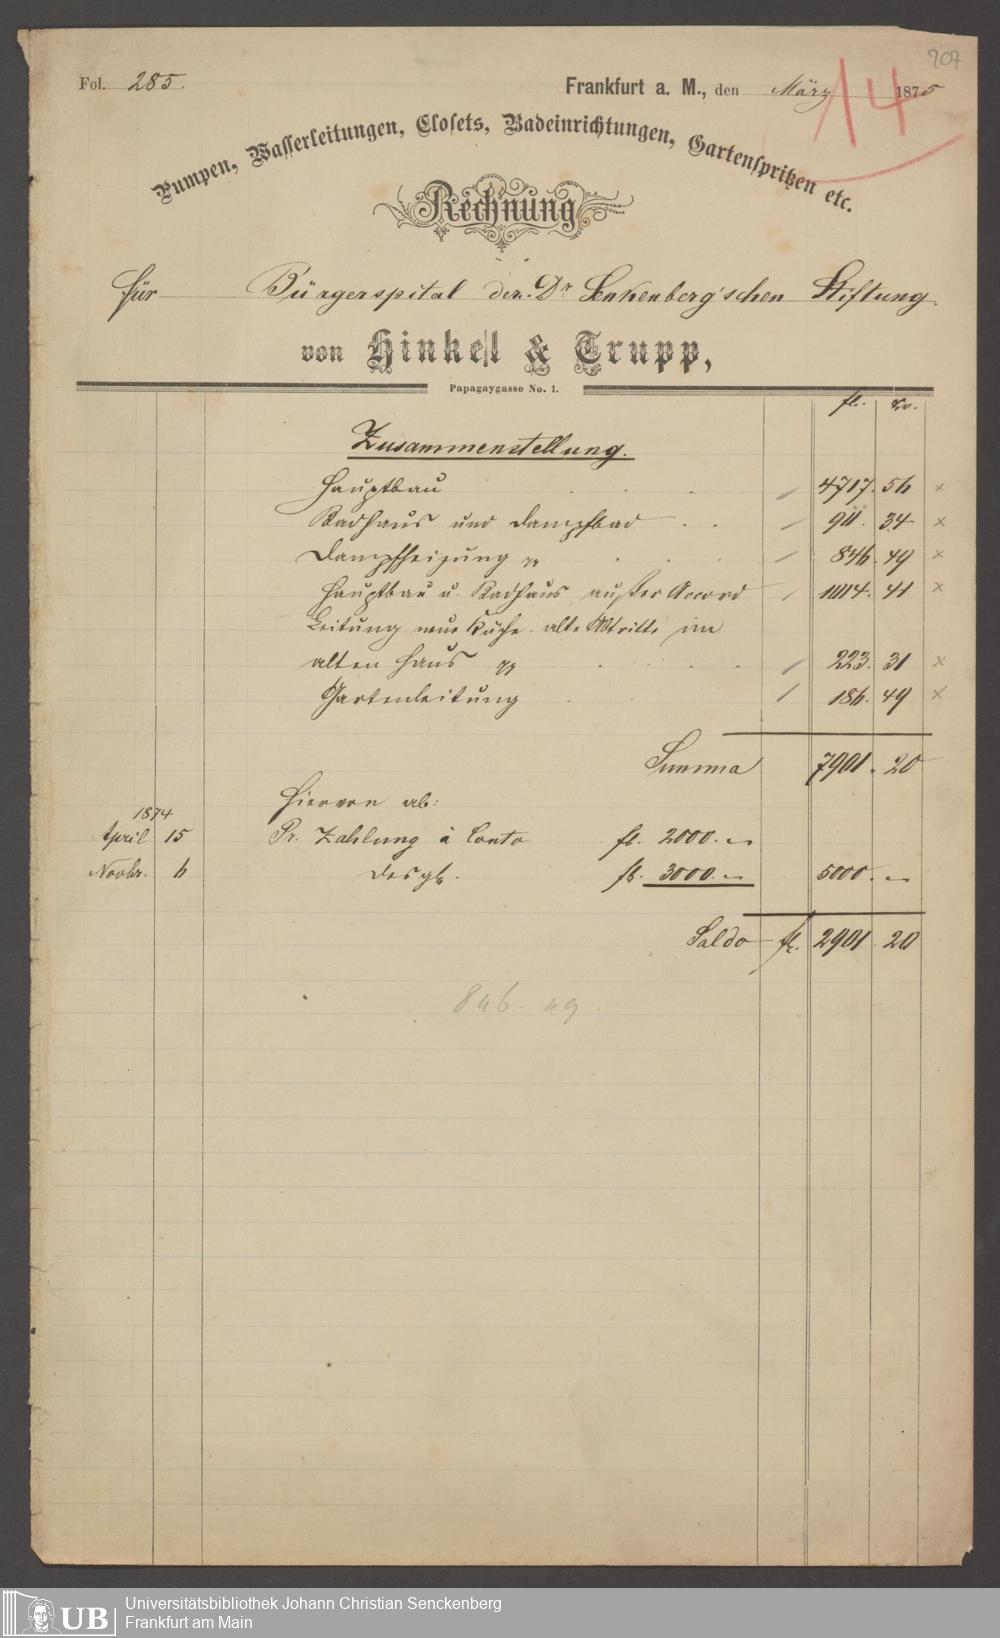 707
Fol. 285.
Frankfurt a. M., den März 1875
14
Pumpen, Wasserleitungen, Closets, Badeinrichtungen, Gartenspritzen etc.
Rechnung
für Bürgerspital der Dr Senkenberg'schen Stiftung.
von Hinkel & Trupp,
Papagaygasse No. 1.
fl. xr.
Zusammenstellung.
Hauptbau 4717. 56
Badhaus und Dampfbad 911. 34
Dampfheizung 846. 49
Hauptbau u. Badhaus außer Accord 1014. 41
Leitung neue Küche. alte Abtritte im
alten Haus 223. 31
Gartenleitung 186. 49
Summa 7901. 20
Hiervon ab:
1874
April 15 Pr. Zahlung à Conto fl. 2000. –
Novbr. 6 desgl. fl. 3000. – 5000. –
Saldo fl. 2901. 20
846. 49.
UB
Universitätsbibliothek Johann Christian Senckenberg
Frankfurt am Main